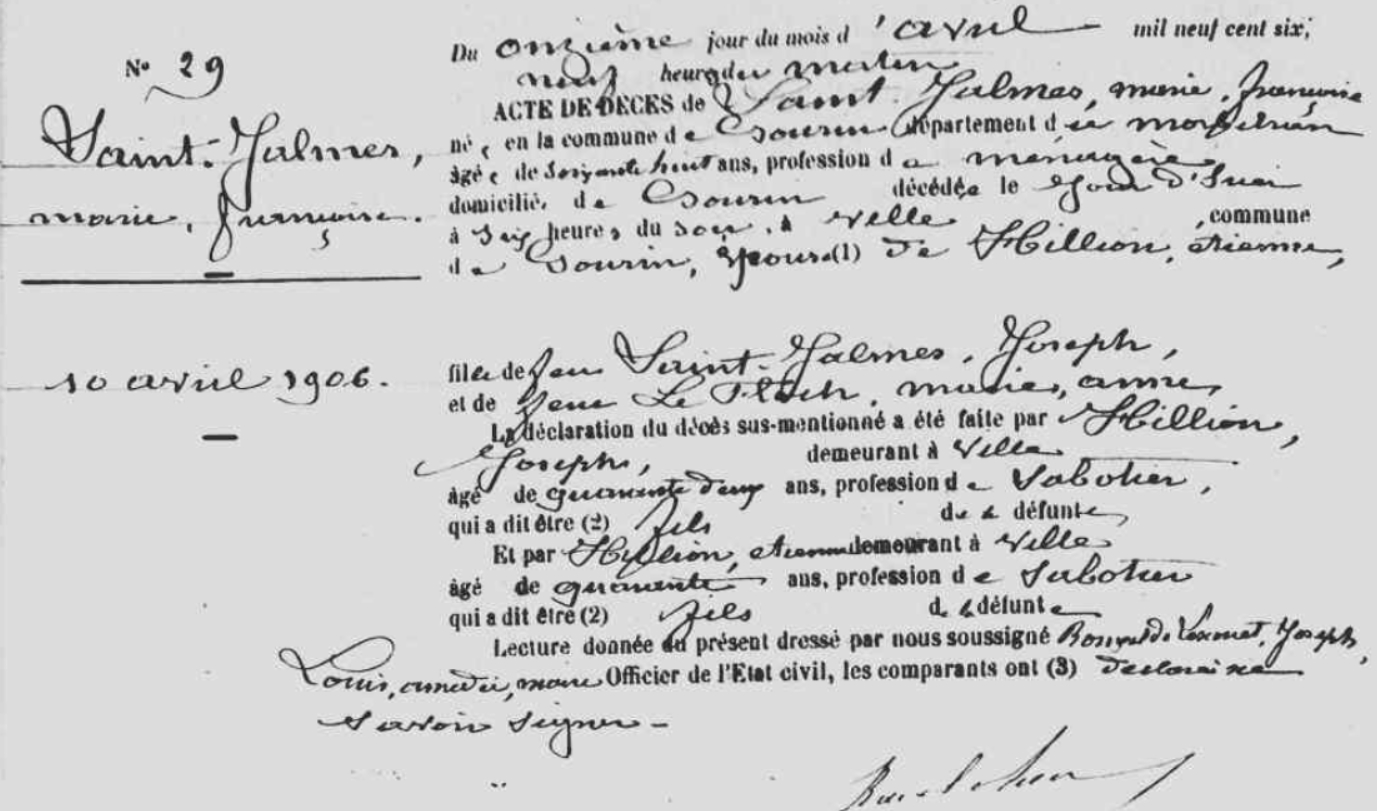 N° 29
Saint-Jalmes,
marie, françoise.
10 avril 1906.
Du onzième jour du mois d'avril mil neuf cent six,
neuf heures du matin
ACTE DE DÉCÈS de Saint-Jalmes, marie, françoise
née, en la commune de Sourn département du morbihan
âgée de soixante huit ans, profession de ménagère
domiciliée de Sourn décédée le jour d'hier
à six heures du soir, à ville , commune
de Sourn, épouse (1) de Hillion, étienne,
fille de feu Saint-Jalmes, Joseph,
et de feue Le Floch, marie, anne,
La déclaration du décès sus-mentionné a été faite par Hillion,
Joseph, demeurant à ville
âgé de quarante deux ans, profession de Sabotier,
qui a dit être (2) fils de la défunte,
Et par Hillion, étienne demeurant à ville
âgé de quarante ans, profession de Sabotier
qui a dit être (2) fils de la défunte
Lecture donnée du présent dressé par nous soussigné de Joseph,
Louis, amédée, maire Officier de l'Etat civil, les comparants ont (3) déclaré ne
savoir signer -